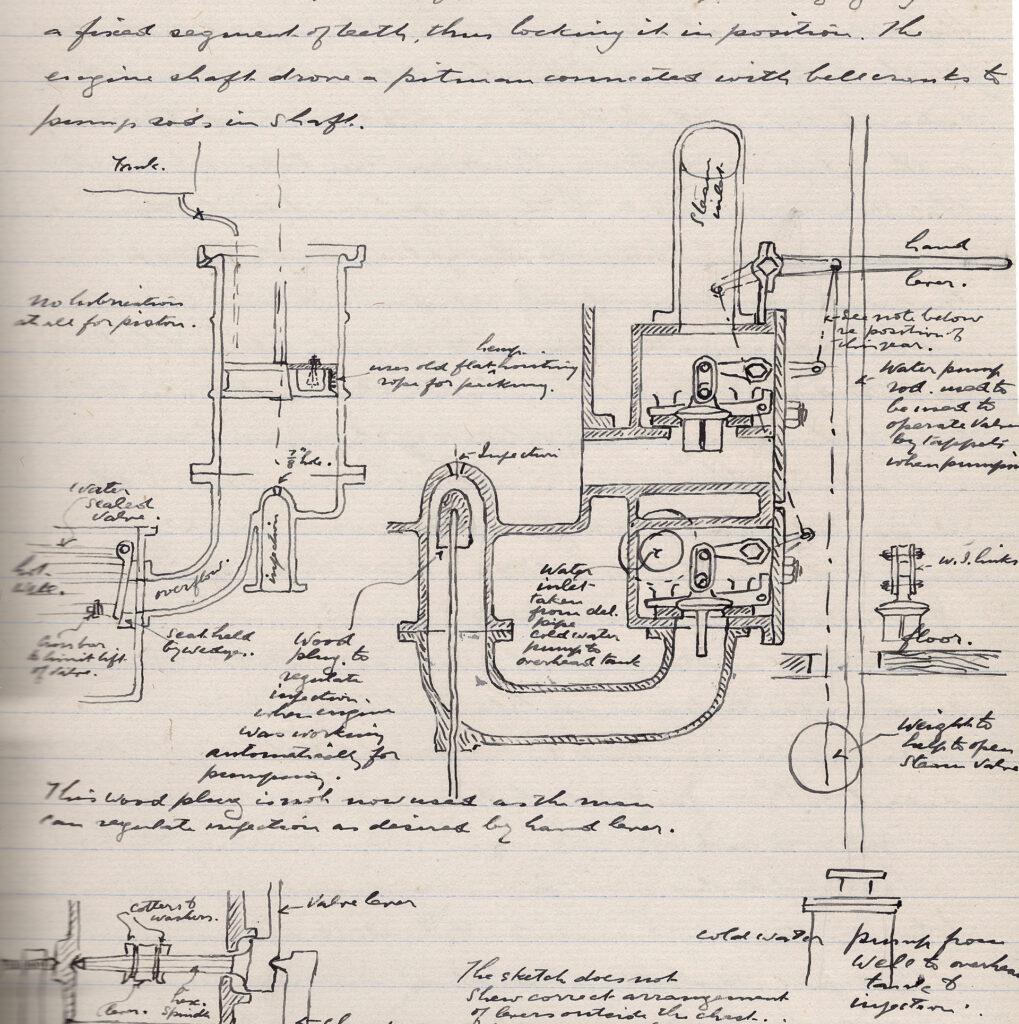 a fixed segment of teeth, thus locking it in position. The
engine shaft drove a pitman connected with bellcranks to
pump rods in shaft.
Tank.
Steam
inlet
hand
lever.
no lubrication
at all for piston.
See note below
re position of
this gear.
hemp.
uses old flat hoisting
rope for packing.
Water pump
rod. used to
be used to
operate valve
by tappets
when pumping
7/8" hole.
Injection
Water
sealed
valve.
injection
overflow.
hot
Water
inlet
taken
from del.
pipe
cold water
pump to
overhead tank
W.I. links
floor.
Cross bar
to limit lift
of valve.
seat held
by wedges.
Wood
plug. to
regulate
injection.
when engine
was working
automatically for
pumping.
Weight to
help to open
Steam valve
This wood plug is not now used as the man
can regulate injection as desired by hand lever.
cotters &
washers.
Valve lever
lever.
hex.
spindle
cold water pump from
well to overhead
tank &
injection.
The sketch does not
shew correct arrangement
of levers outside the chest.